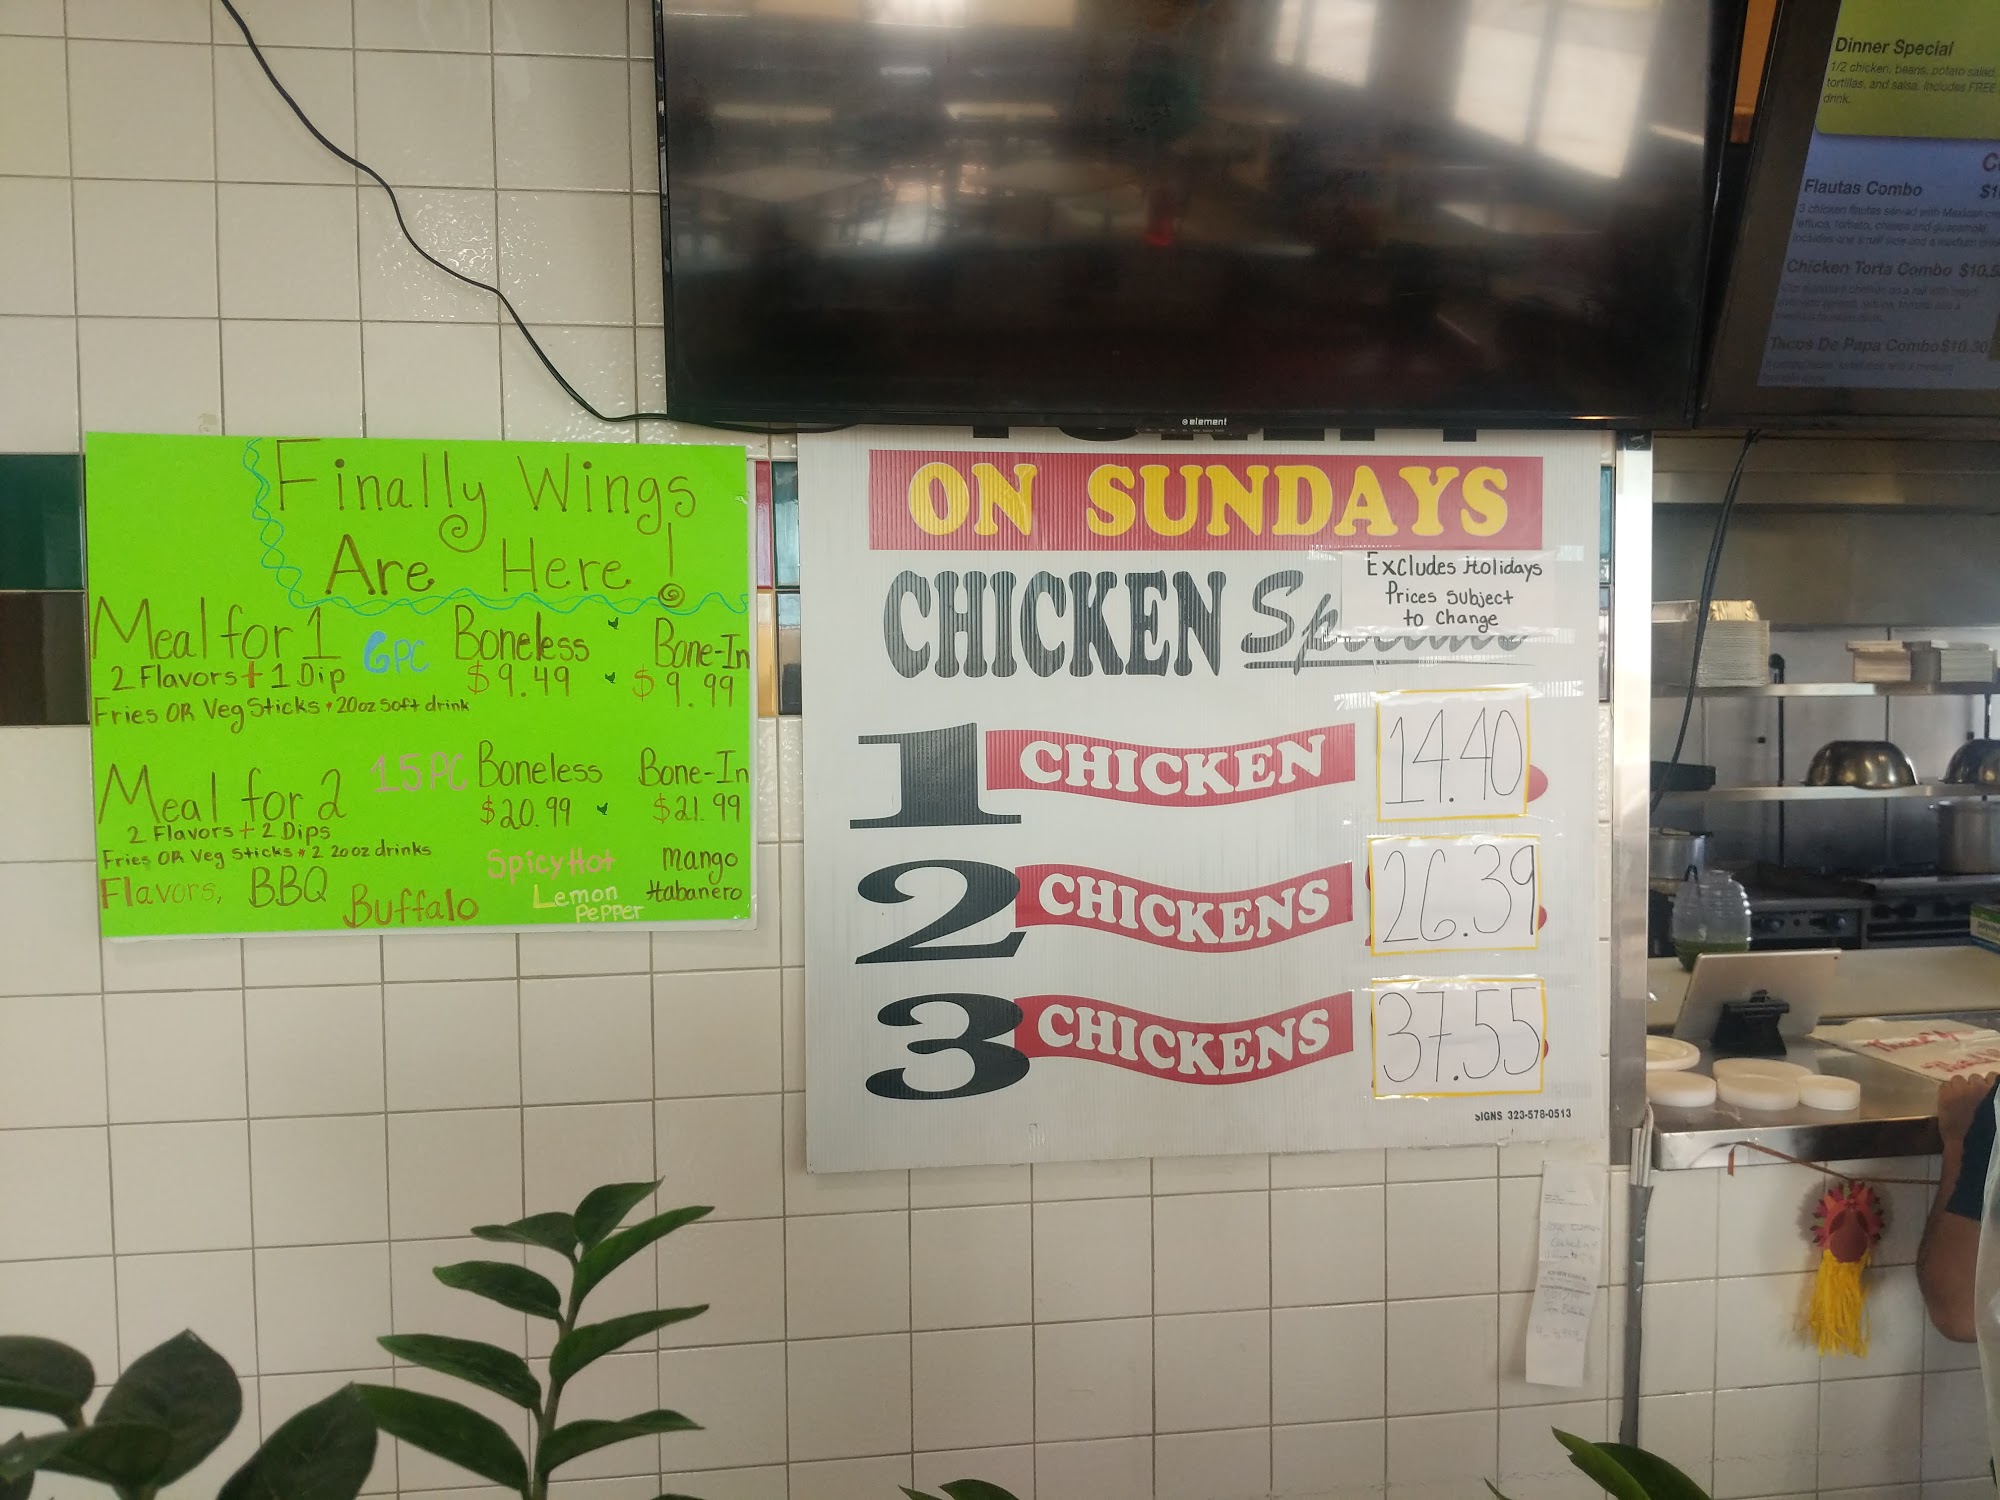 Finally Wings
Are Here!
Meal for 1
6PC
Boneless
Bone-In
2 Flavors + 1 Dip
$9.49
$9.99
Fries OR Veg Sticks • 20oz Soft drink
Meal for 2
15PC
Boneless
Bone-In
$20.99
$21.99
2 Flavors + 2 Dips
Fries OR Veg Sticks • 2 20oz drinks
Flavors,
BBQ
Buffalo
Spicy Hot
Lemon
Pepper
Mango
Habanero
element
ON SUNDAYS
CHICKEN
Excludes Holidays
Prices Subject
to Change
1 CHICKEN 14.40
2 CHICKENS 26.39
3 CHICKENS 37.55
SIGNS 323-578-0513
Dinner Special
1/2 chicken, beans, potato salad,
tortillas, and salsa. Includes FREE
drink.
Flautas Combo
3 chicken flautas served with Mexican
lettuce, tomato, cheese and guacamole.
Includes one small side and a medium
Chicken Torta Combo $10.5
Tacos De Papa Combo $10.30